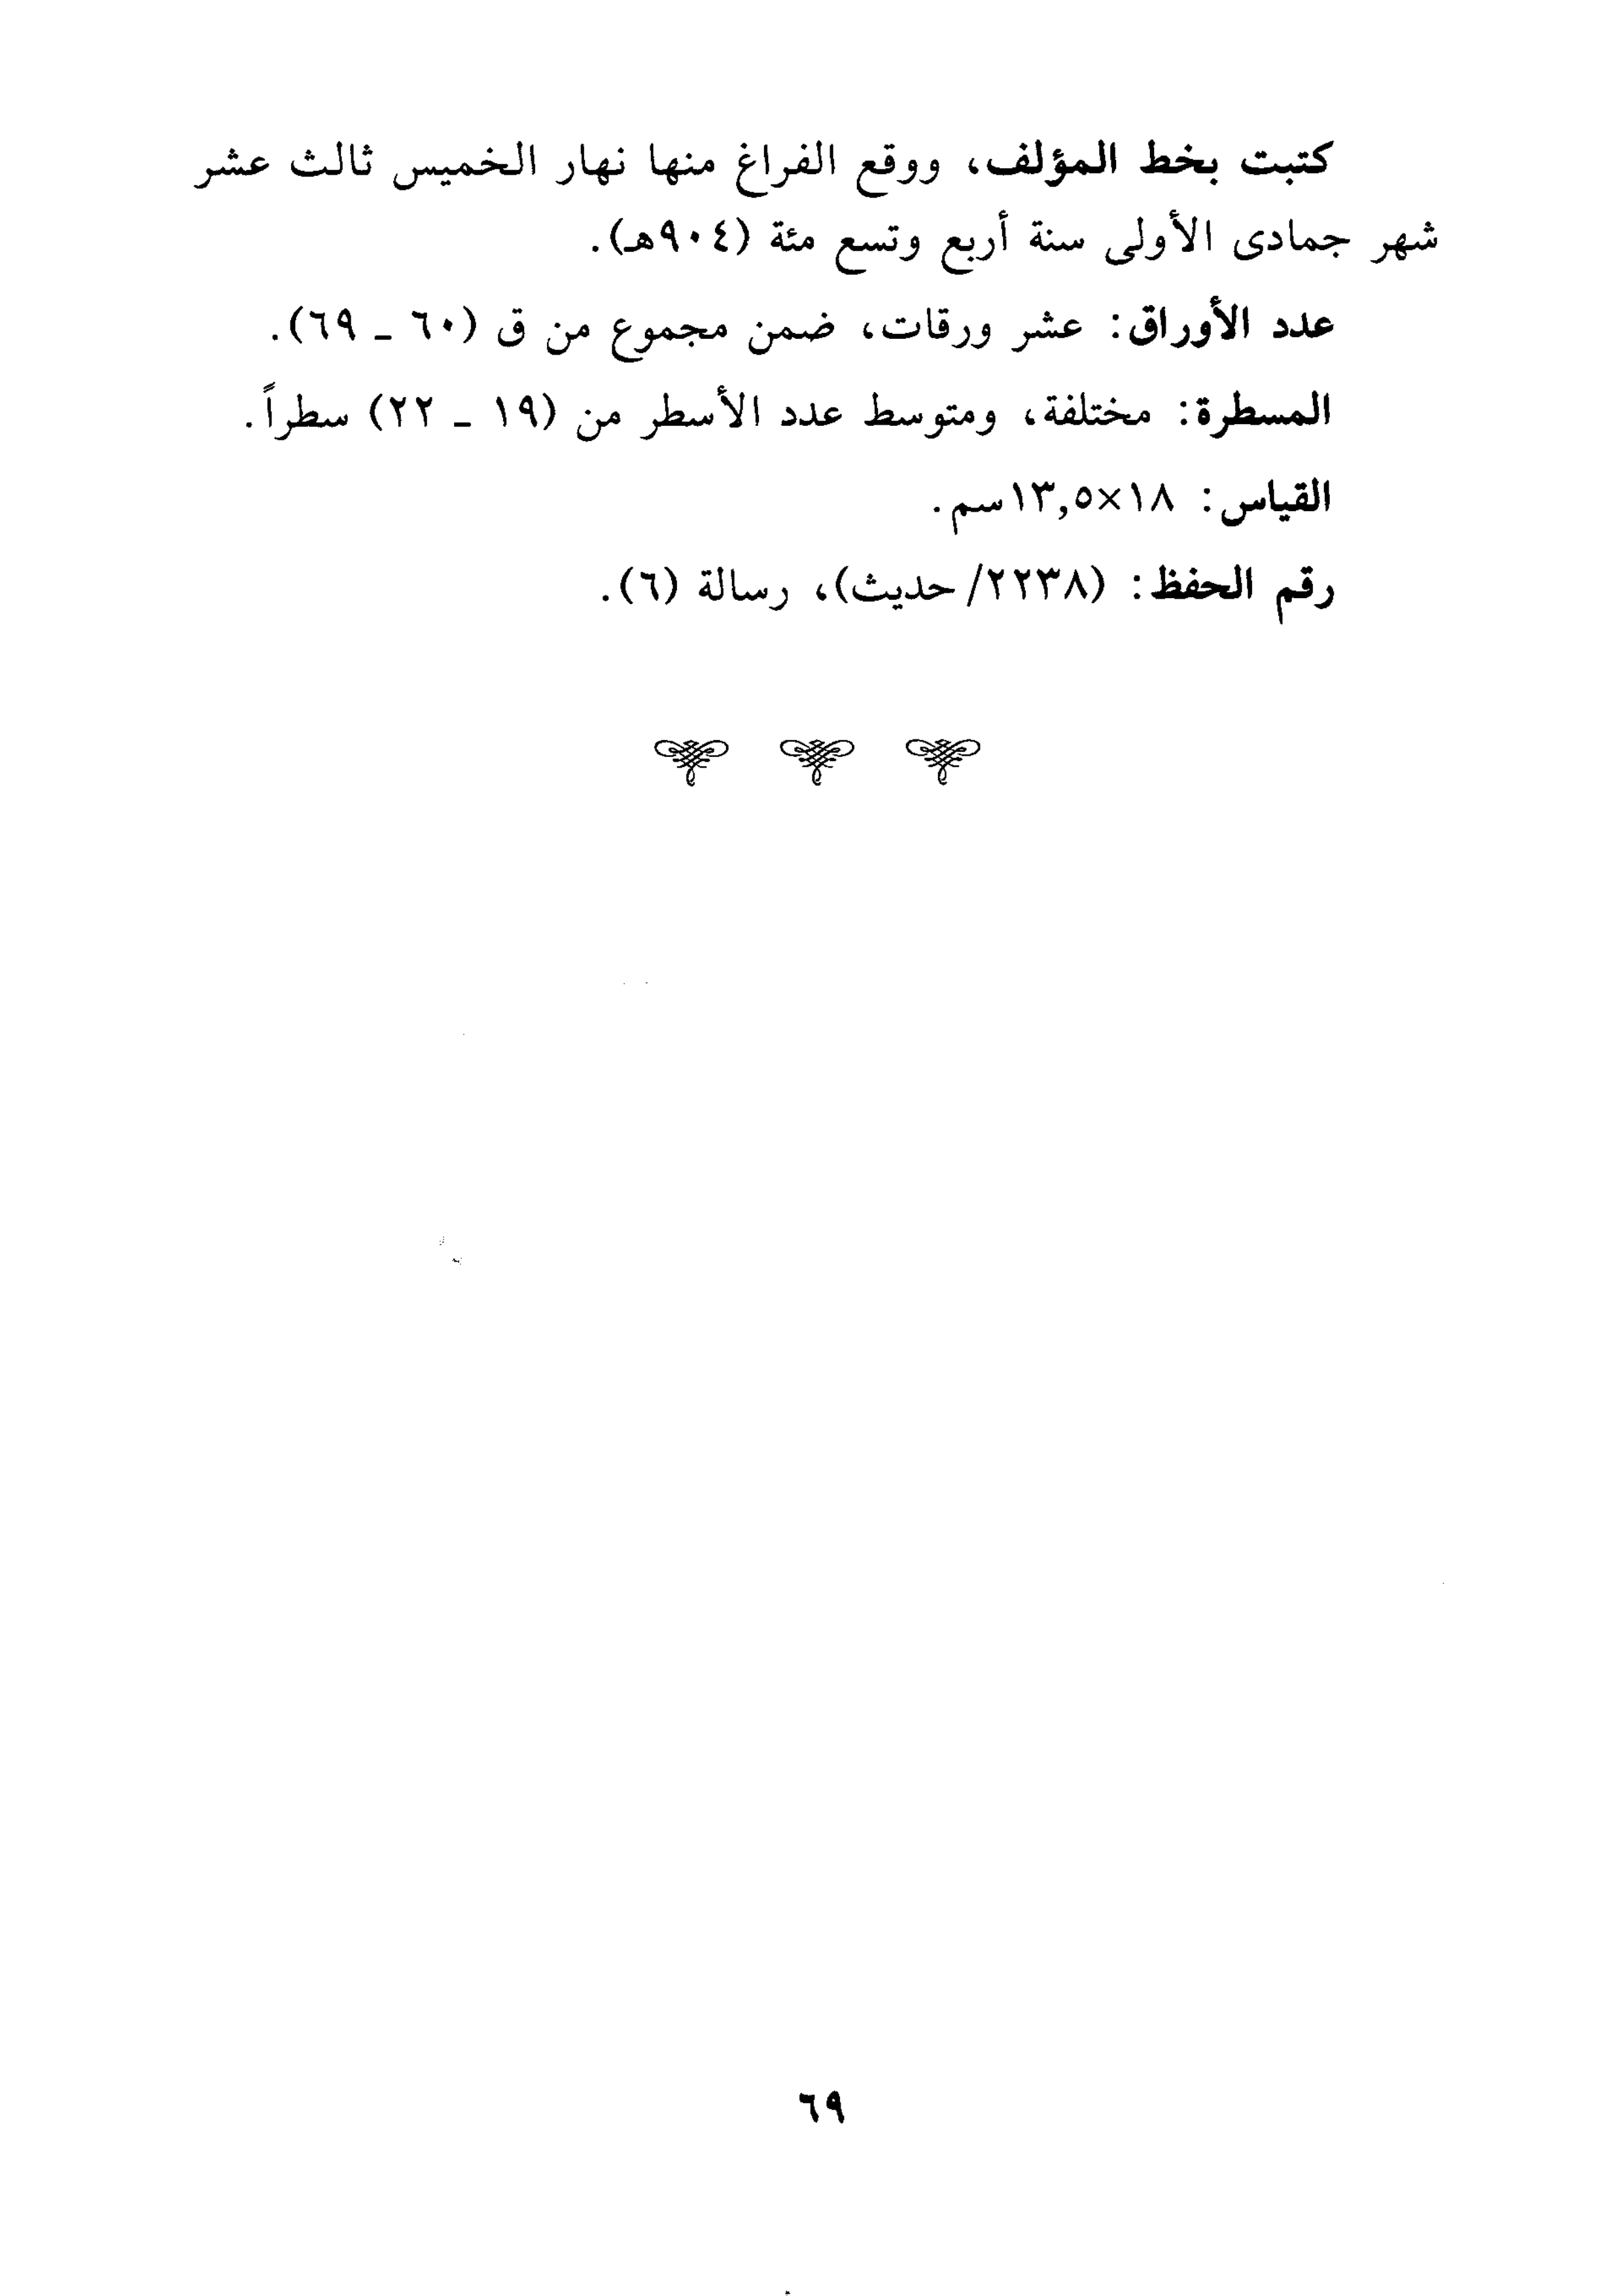 كتبت بخط المؤلف، ووقع الفراغ منها نهار الخميس ثالث عشر
شهر جمادى الأولى سنة أربع وتسع مئة (٩٠٤هـ).
عدد الأوراق: عشر ورقات، ضمن مجموع من ق (٦٠ ـ ٦٩).
المسطرة: مختلفة، ومتوسط عدد الأسطر من (١٩ ـ ٢٢) سطراً.
القياس: ١٨×١٣,٥سم.
رقم الحفظ: (٢٢٣٨/ حديث)، رسالة (٦).
٦٩